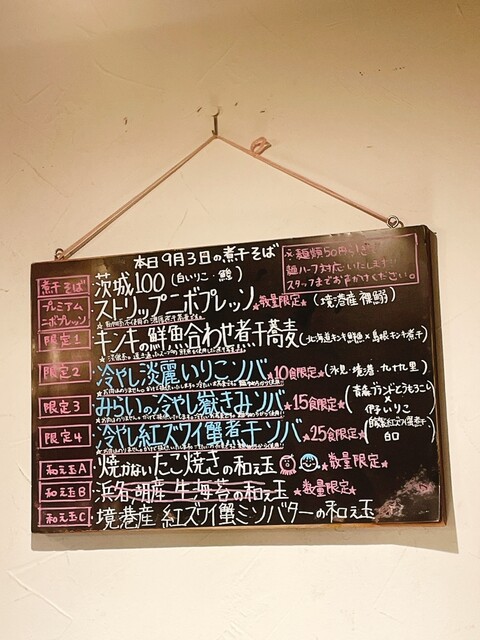 本日9月3日の煮干そば
※麺類50円引き
麺ハーフ対応いたします!!
スタッフまでお声がけください。
煮干そば 茨城100 (白いりこ・鯵)
プレミアム
ニボプレッソ
ストリップニボプレッソ ★数量限定★ (境港産 裸鰯)
限定1 キンキの鮮魚合わせ煮干蕎麦 (北海道キンキ鮮魚×島根キンキ煮干)
限定2 冷やし淡麗いりこソバ ★10食限定★ (氷見・境港・九十九里)
限定3 みらいの冷やし嶽きみソバ ★15食限定★ (青森ブランドとうもろこし
×
伊予いりこ)
限定4 冷やし紅ズワイ蟹煮干ソバ ★25食限定★
白口
和え玉A 焼かないたこ焼きの和え玉 ★数量限定★
和え玉B 浜名湖産生海苔の和え玉 ★数量限定★
和え玉C 境港産 紅ズワイ蟹ミソバターの和え玉